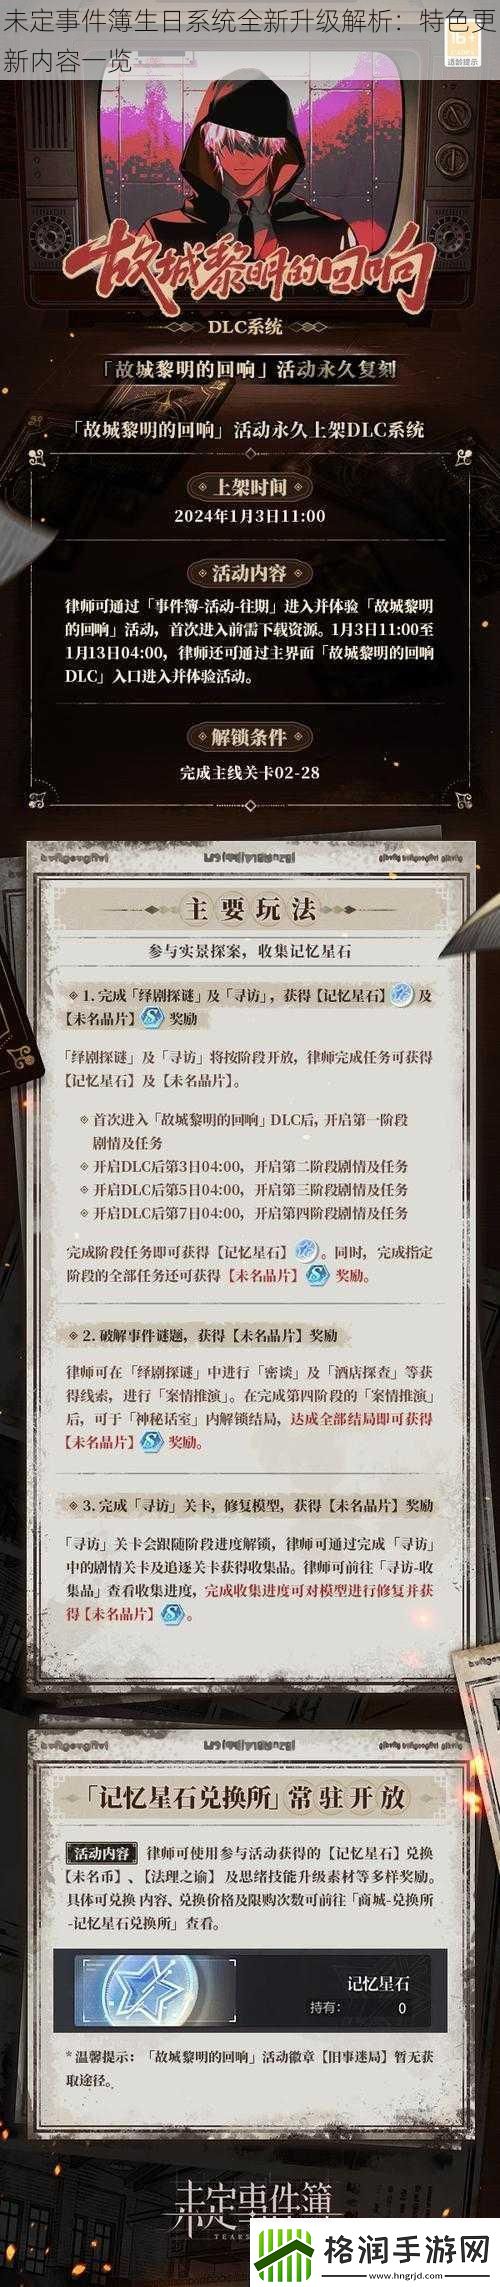 未定事件簿生日系统全新升级解析：特色更
新内容一览
16+
CADPA
适龄提示
故城黎明的回响
DLC系统
「故城黎明的回响」活动永久复刻
「故城黎明的回响」活动永久上架DLC系统
上架时间
2024年1月3日11:00
活动内容
律师可通过「事件簿-活动-往期」进入并体验「故城黎明
的回响」活动，首次进入前需下载资源。1月3日11:00至
1月13日04:00，律师还可通过主界面「故城黎明的回响
DLC」入口进入并体验活动。
解锁条件
完成主线关卡02-28
主要玩法
参与实景探案，收集记忆星石
1. 完成「绎剧探谜」及「寻访」，获得【记忆星石】及
【未名晶片】奖励
「绎剧探谜」及「寻访」将按阶段开放，律师完成任务可获得
【记忆星石】及【未名晶片】。
首次进入「故城黎明的回响」DLC后，开启第一阶段
剧情及任务
开启DLC后第3日04:00，开启第二阶段剧情及任务
开启DLC后第5日04:00，开启第三阶段剧情及任务
开启DLC后第7日04:00，开启第四阶段剧情及任务
完成阶段任务即可获得【记忆星石】。同时，完成指定
阶段的全部任务还可获得【未名晶片】奖励。
2. 破解事件谜题，获得【未名晶片】奖励
律师可在「绎剧探谜」中进行「密谈」及「酒店探查」等获
得线索，进行「案情推演」。在完成第四阶段的「案情推演」
后，可于「神秘话室」内解锁结局，达成全部结局即可获得
【未名晶片】奖励。
3. 完成「寻访」关卡，修复模型，获得【未名晶片】奖励
「寻访」关卡会跟随阶段进度解锁，律师可通过完成「寻访」
中的剧情关卡及追逐关卡获得收集品。律师可前往「寻访-收
集品」查看收集进度，完成收集进度可对模型进行修复并获
得【未名晶片】。
「记忆星石兑换所」常驻开放
活动内容 律师可使用参与活动获得的【记忆星石】兑换
【未名币】、【法理之谕】及思绪技能升级素材等多样奖励。
具体可兑换内容、兑换价格及限购次数可前往「商城-兑换所
-记忆星石兑换所」查看。
记忆星石
持有： 0
* 温馨提示：「故城黎明的回响」活动徽章【旧事迷局】暂无获
取途径。
未定事件簿
格润手游网
www.hngrjd.com